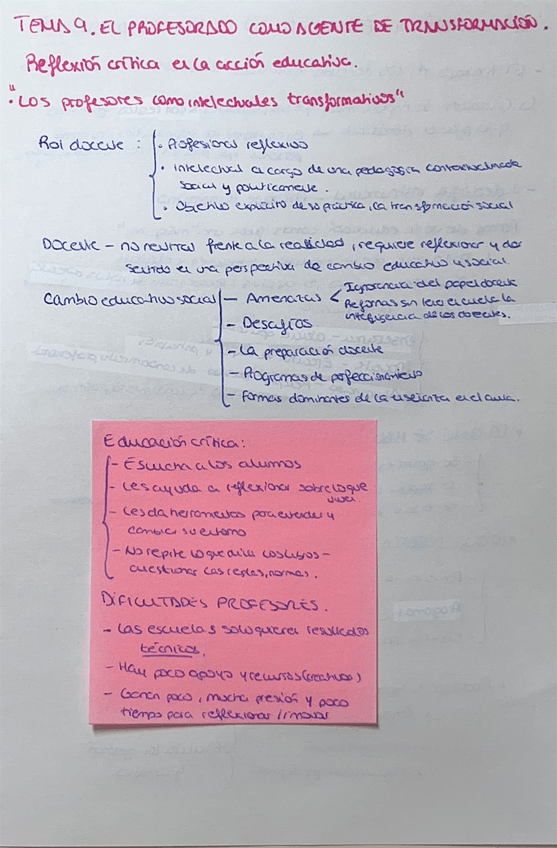 TEMA 9. EL PROFESORADO COMO AGENTE DE TRANSFORMACIÓN.
Reflexión crítica en la acción educativa.
"Los profesores como intelectuales transformativos"
Rol docente :
· Profesional reflexivo
· intelectual a cargo de una pedagogía contextualizada
social y políticamente.
· Objetivo explícito de su práctica, la transformación social
Docente - no neutral frente a la realidad, requiere reflexionar y dar
sentido en una perspectiva de cambio educativo y social
Cambio educativo social
- Amenazas < Ignorancia del papel docente
Reformas sin tener en cuenta la
inteligencia de los docentes.
- Desafíos
- La preparación docente
- Programas de perfeccionamiento
- Formas dominantes de la enseñanza en el aula.
Educación crítica:
- Escucha a los alumnos
- Les ayuda a reflexionar sobre lo que
viven.
- Les da herramientas para entender y
cambiar su entorno
- No repite lo que dicen los libros -
cuestionar las reglas, normas.
DIFICULTADES PROFESORES.
- Las escuelas solo quieren resultados
técnicos.
- Hay poco apoyo y recursos (creativos)
- Ganan poco, mucha presión y poco
tiempo para reflexionar / innovar